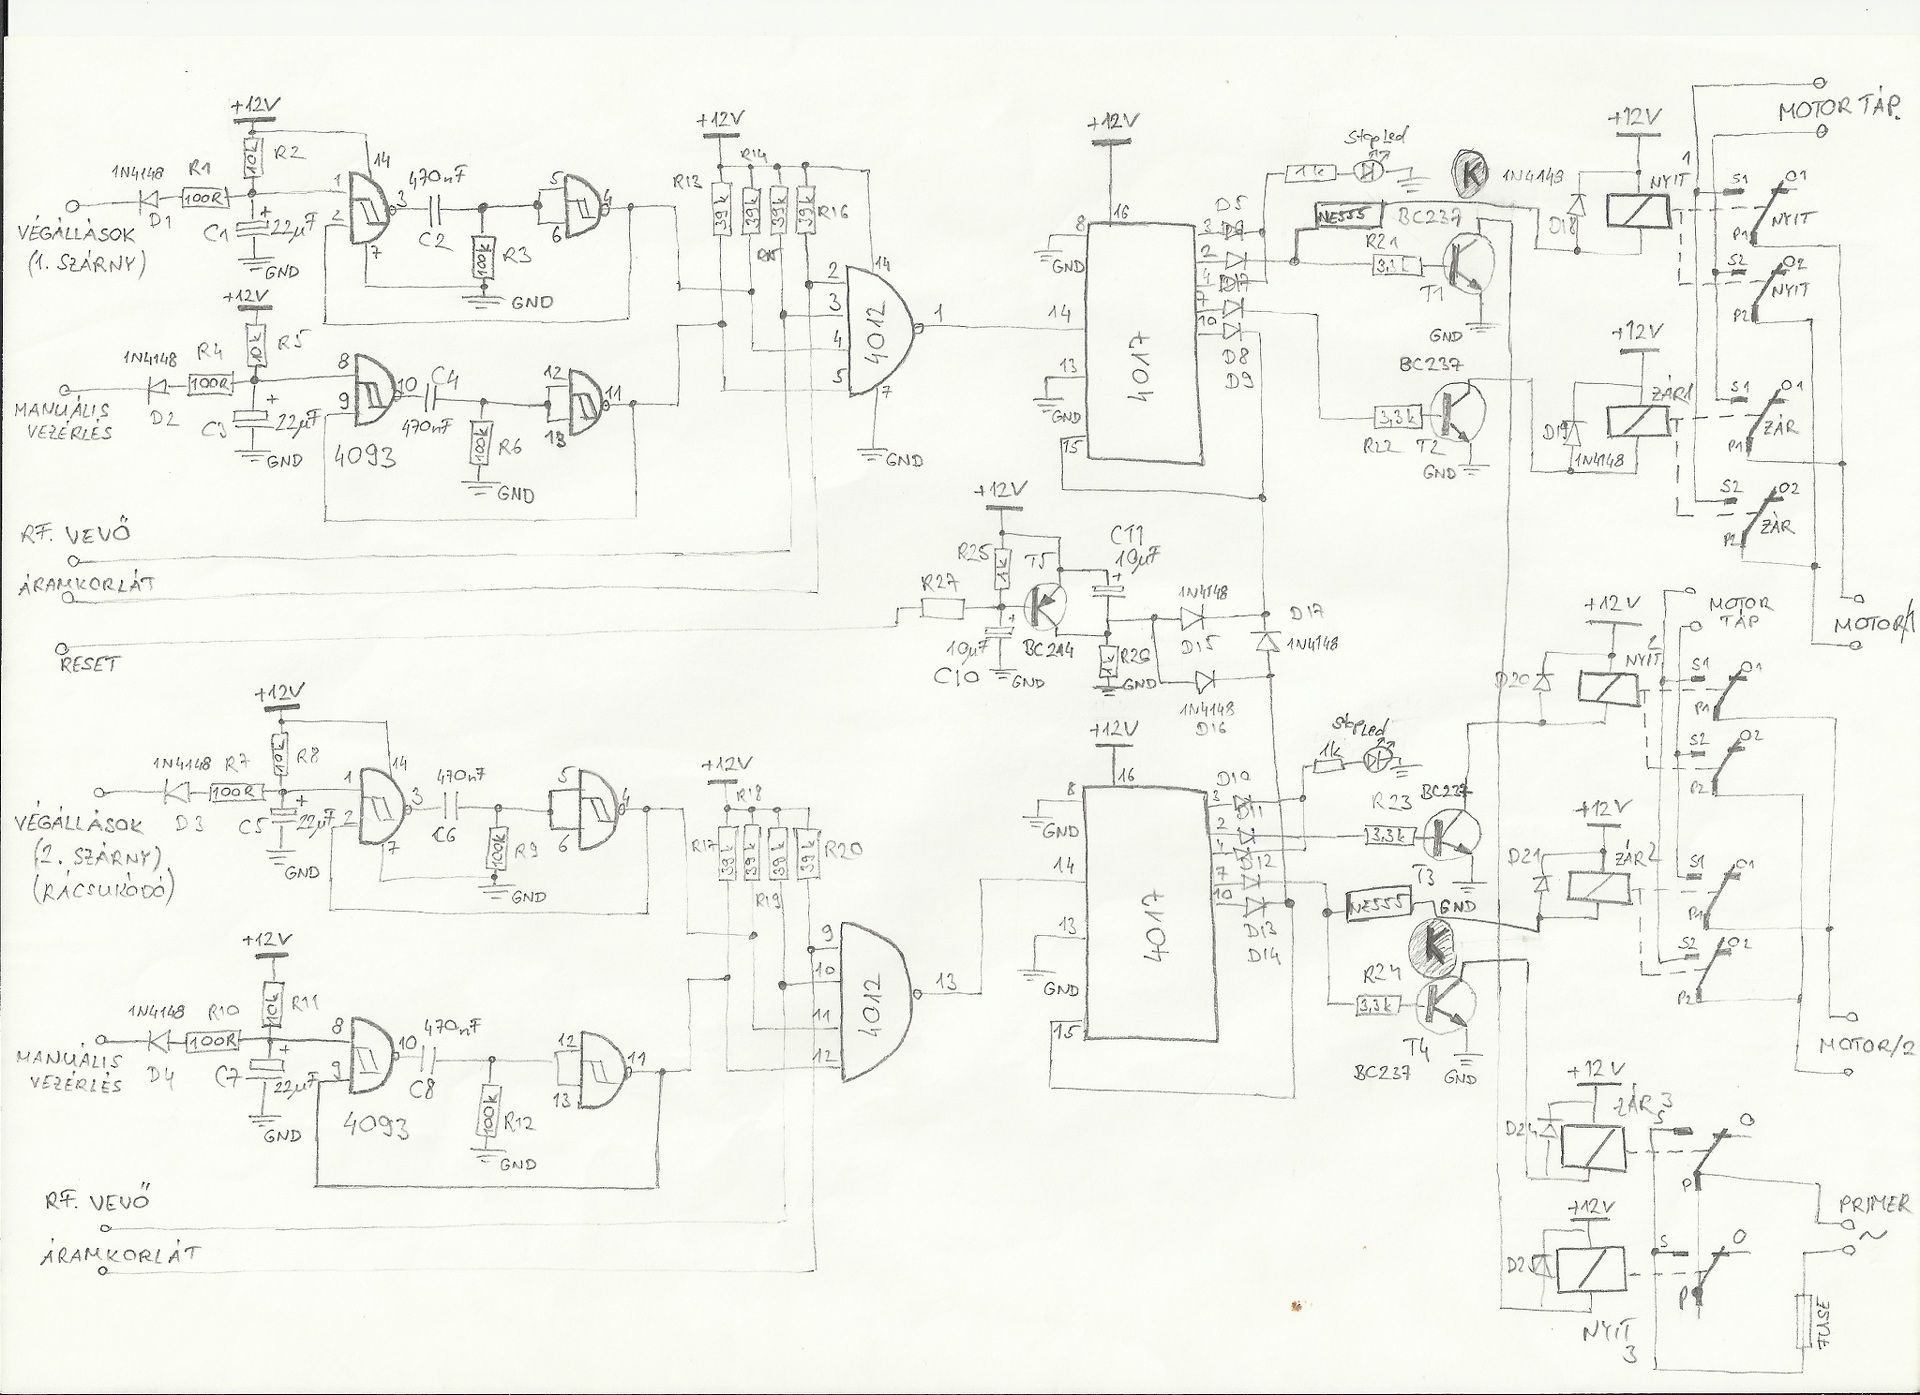 +12V
R2
10k
1N4148
R1
100R
D1
VÉGÁLLÁSOK
(1. SZÁRNY)
C1
22µF
GND
14
1
2
3
7
470nF
C2
100k
R3
GND
5
6
4
+12V
10k
R5
1N4148
R4
100R
D2
MANUÁLIS
VEZÉRLÉS
C3
22µF
GND
8
9
10
4093
C4
470nF
100k
R6
GND
12
13
11
RF. VEVŐ
ÁRAMKORLÁT
RESET
+12V
R14
R13
R16
39k
39k
39k
39k
14
2
3
4
5
7
4012
1
GND
+12V
16
8
GND
14
13
GND
15
4017
3
2
4
7
10
D5
D8
D9
1k
StopLed
K
1N4148
NE555
BC237
R21
3,3k
T1
GND
BC237
3,3k
R22
T2
GND
+12V
1
NYIT
D18
+12V
ZÁR1
D19
1N4148
MOTOR TÁP.
S1
O1
NYIT
P1
S2
O2
NYIT
P2
S1
O1
ZÁR
P1
S2
O2
ZÁR
P2
MOTOR/1
+12V
R25
1k
T5
C11
10µF
R27
10µF
C10
GND
BC214
R26
1k
GND
1N4148
D15
D17
1N4148
1N4148
D16
+12V
R8
10k
1N4148
R7
100R
D3
VÉGÁLLÁSOK
(2. SZÁRNY)
(RÁCSUKÓDÓ)
C5
22µF
GND
14
1
2
3
7
470nF
C6
100k
R9
GND
5
6
4
+12V
10k
R11
1N4148
R10
100R
D4
MANUÁLIS
VEZÉRLÉS
C7
22µF
GND
8
9
10
4093
470nF
C8
100k
R12
GND
12
13
11
RF. VEVŐ
ÁRAMKORLÁT
+12V
R18
R17
R20
R19
39k
39k
39k
39k
9
10
11
12
4012
13
+12V
16
8
GND
14
13
GND
15
4017
3
2
4
7
10
D10
D11
D12
D13
D14
1k
StopLed
R23
3,3k
BC237
T3
GND
NE555
K
R24
3,3k
T4
BC237
GND
+12V
2
NYIT
D20
MOTOR
TÁP
S1
O1
P1
S2
O2
P2
+12V
ZÁR2
D21
S1
O1
P1
S2
O2
P2
MOTOR/2
+12V
ZÁR 3
S
O
P
+12V
S
O
P
NYIT
3
PRIMER
~
FUSE